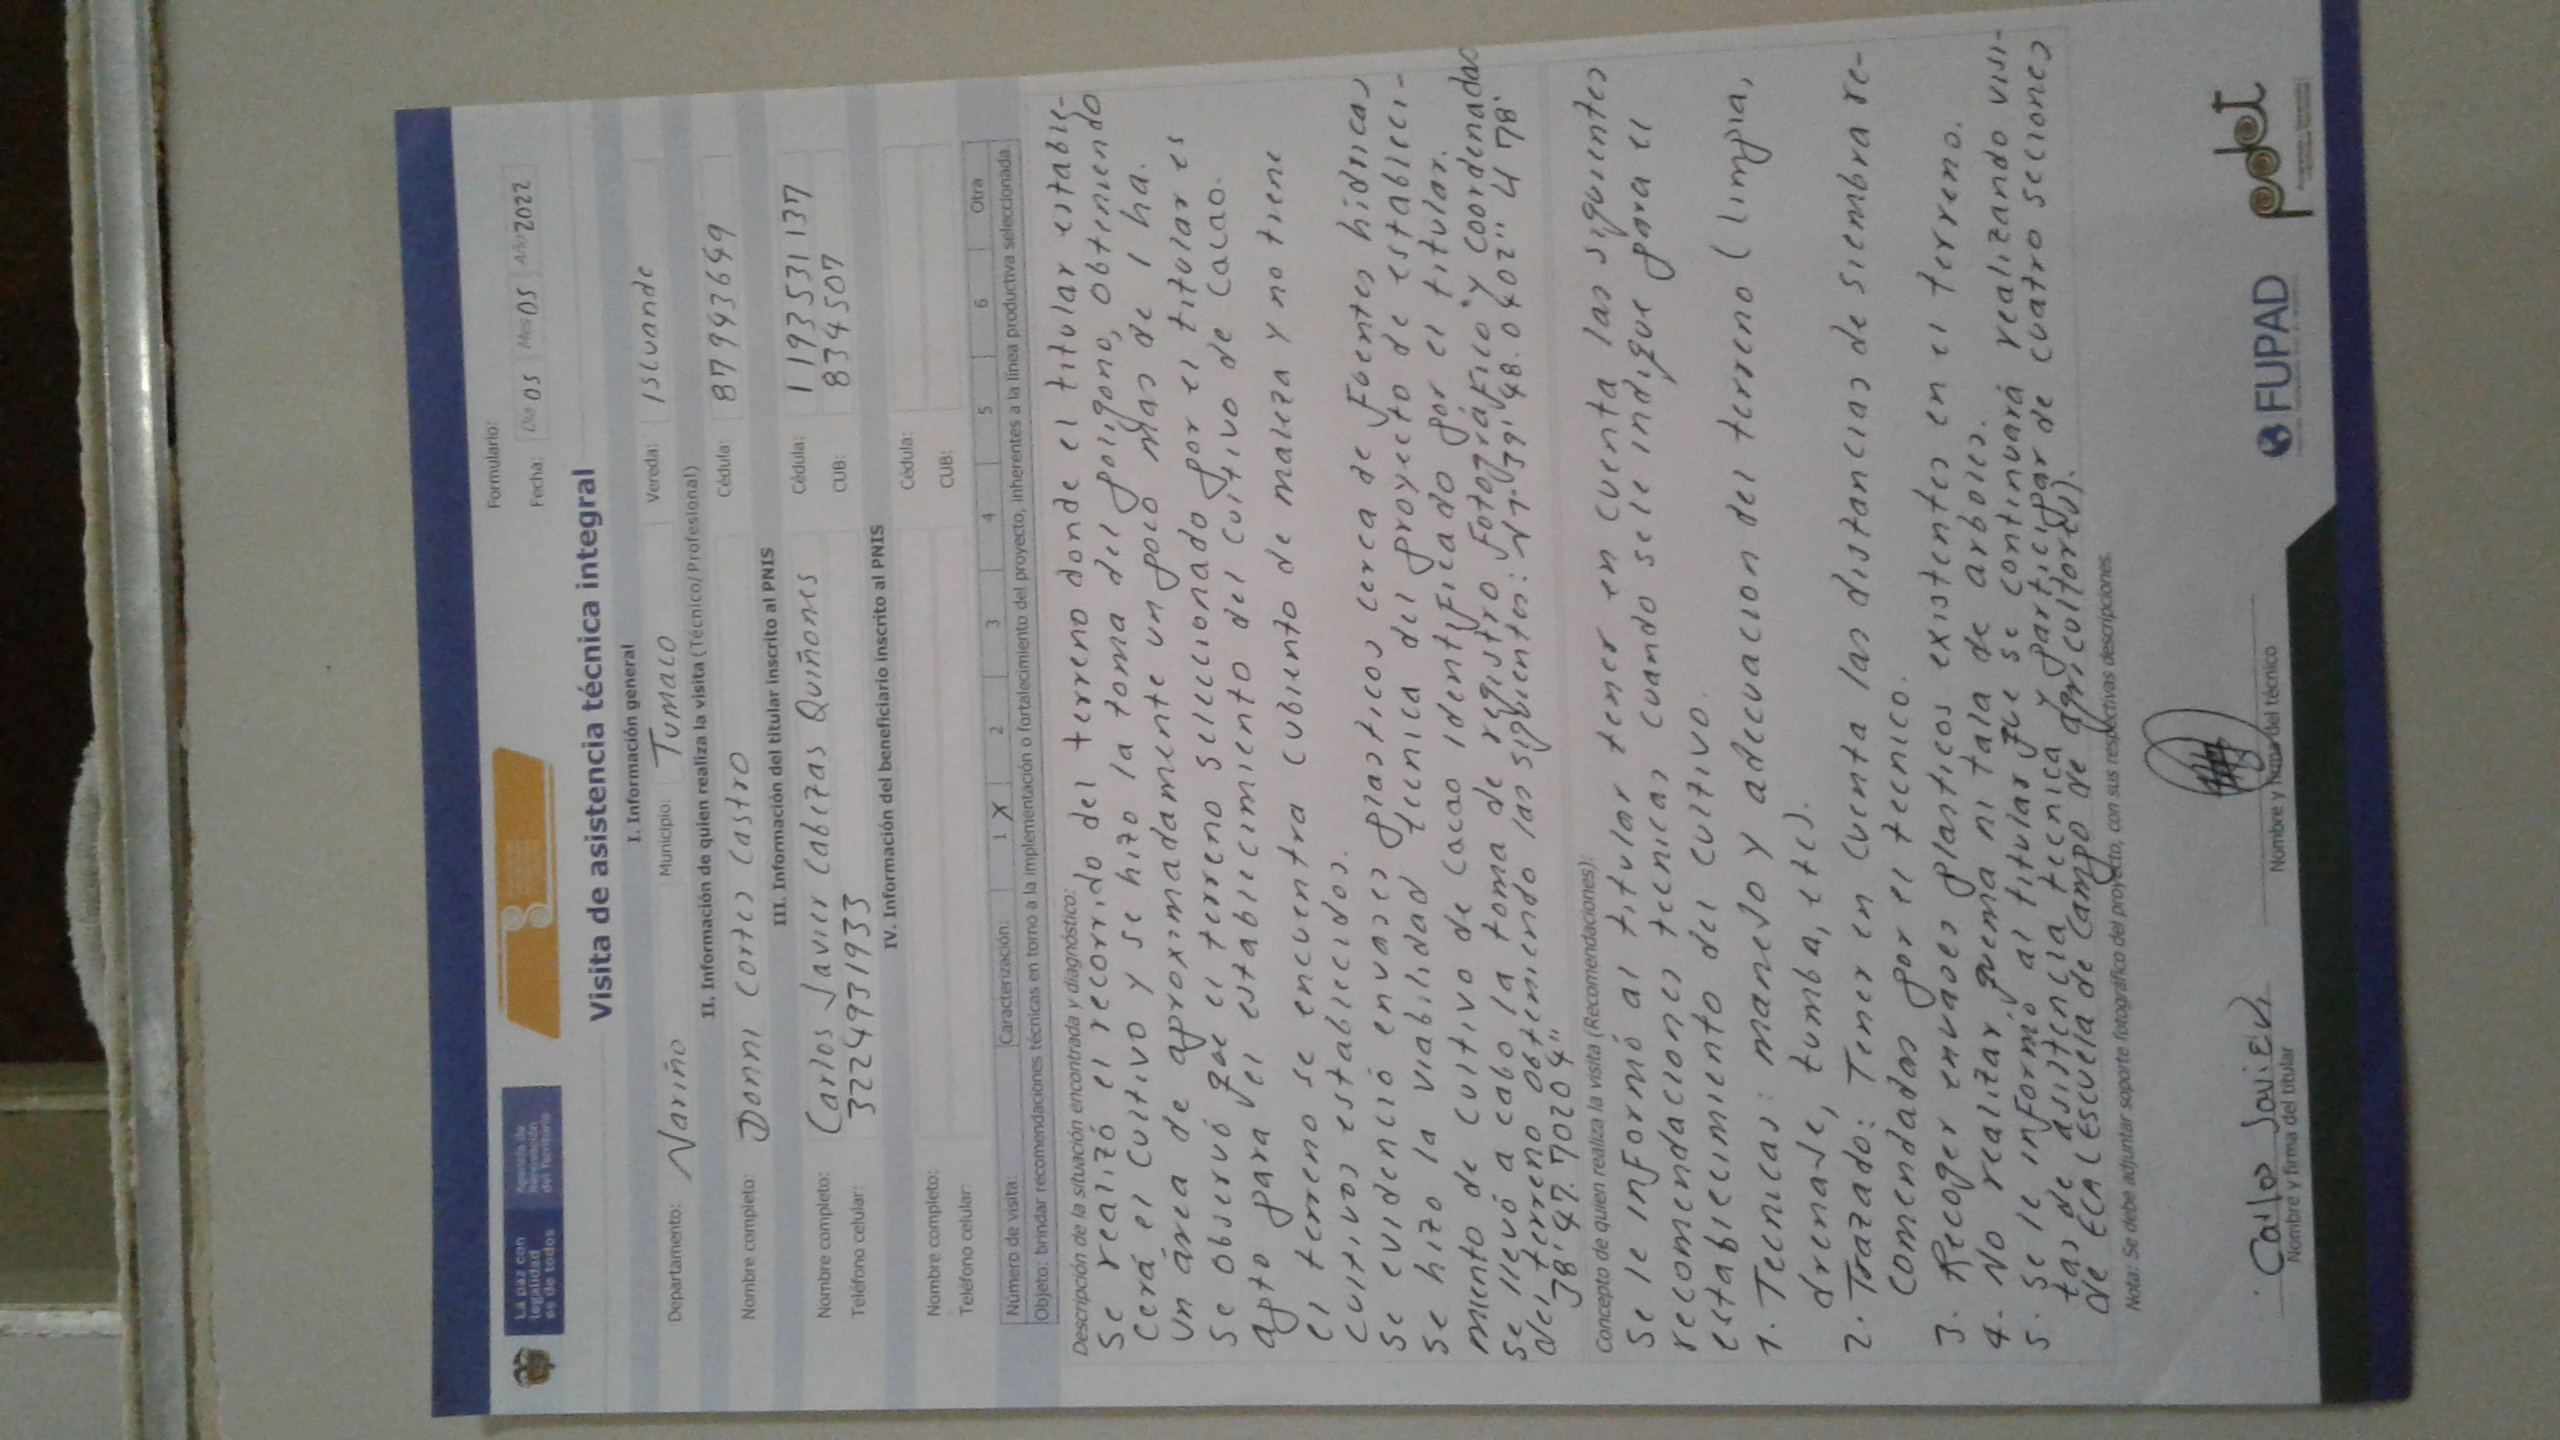 La paz con
legalidad
es de todos
Agencia de
Renovación
del Territorio
Formulario:
Fecha: Día 05 Mes 05 Año 2022
Visita de asistencia técnica integral
I. Información general
Departamento: Nariño Municipio: Tumaco Vereda: Iscuande
II. Información de quien realiza la visita (Técnico/Profesional)
Nombre completo: Donni Cortes Castro Cédula: 87943649
III. Información del titular inscrito al PNIS
Nombre completo: Carlos Javier Cabezas Quiñones Cédula: 1193531137
Teléfono celular: 3224931933 CUB: 834507
IV. Información del beneficiario inscrito al PNIS
Nombre completo: Cédula:
Teléfono celular: CUB:
Número de visita: Caracterización: 1 X 2 3 4 5 6 Otra
Objeto: brindar recomendaciones técnicas en torno a la implementación o fortalecimiento del proyecto, inherentes a la línea productiva seleccionada.
Descripción de la situación encontrada y diagnóstico:
Se realizó el recorrido del terreno donde el titular estable-
cerá el cultivo y se hizo la toma del polígono, obteniendo
un área de aproximadamente un poco mas de 1 ha.
Se observó que el terreno seleccionado por el titular es
apto para el establecimiento del cultivo de cacao.
el terreno se encuentra cubierto de maleza y no tiene
cultivos establecidos.
Se evidenció envases plasticos cerca de fuentes hidricas
Se hizo la viabilidad tecnica del proyecto de estableci-
miento de cultivo de cacao identificado por el titular.
Se llevó a cabo la toma de registro fotográfico y coordenadas
del terreno obteniendo las siguientes: N1.39'48.0402" W 78°
38'47.70204"
Concepto de quien realiza la visita (Recomendaciones):
Se le informó al titular tener en cuenta las siguientes
recomendaciones tecnicas cuando se le indique para el
establecimiento del cultivo.
1. Tecnicas: manejo y adecuacion del terreno (limpia,
drenaje, tumba, etc).
2. Trazado: Tener en cuenta las distancias de siembra re-
comendadas por el tecnico.
3. Recoger envases plasticos existentes en el terreno.
4. No realizar quema ni tala de arboles.
5. Se le informo al titular que se continuará realizando visi-
tas de asistencia tecnica y participar de cuatro seciones
de ECA (Escuela de Campo de agricultores).
Nota: Se debe adjuntar soporte fotográfico del proyecto, con sus respectivas descripciones.
Carlos Javier
Nombre y firma del titular
Nombre y firma del técnico
FUPAD
pdet